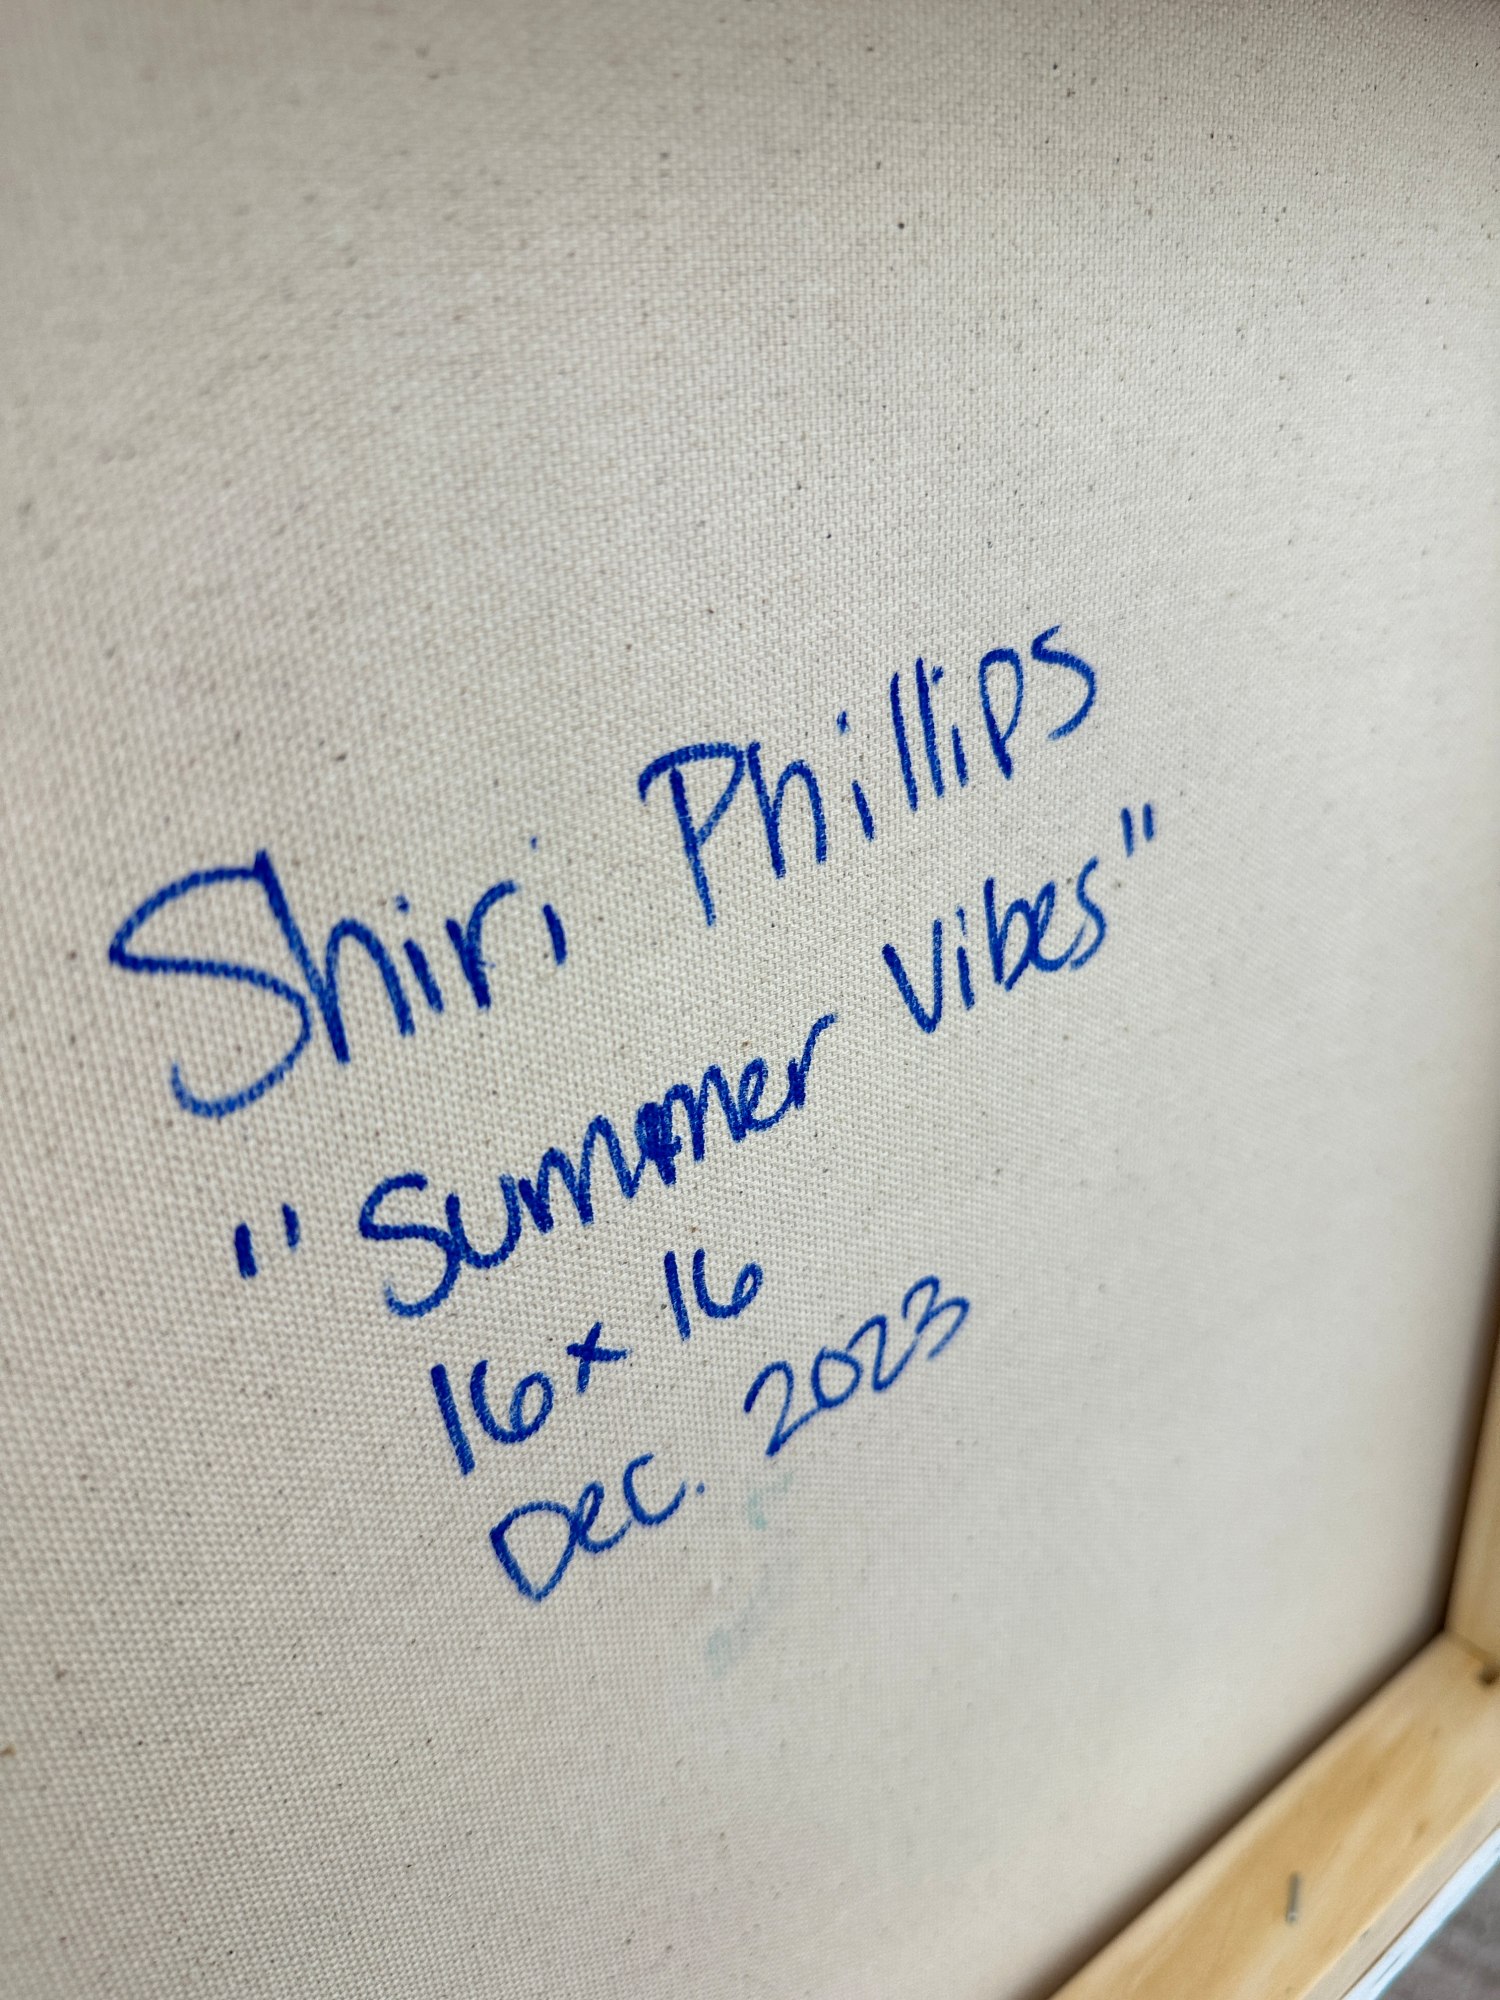 Shiri Phillips
"Summer Vibes"
16 x 16
Dec. 2023